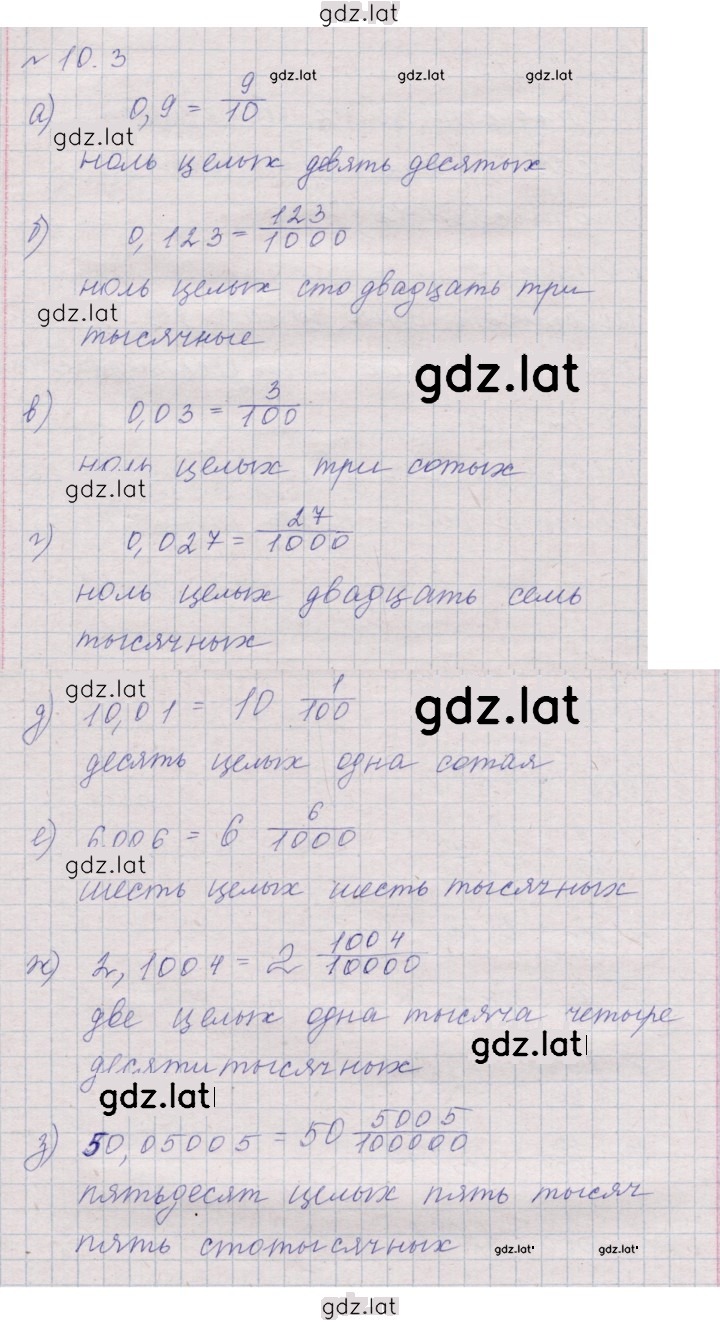 gdz.lat
№ 10.3
gdz.lat gdz.lat gdz.lat
а) 0,9 = 9/10
gdz.lat
ноль целых девять десятых
б) 0,123 = 123/1000
ноль целых сто двадцать три
gdz.lat
тысячные
gdz.lat
в) 0,03 = 3/100
ноль целых три сотых
gdz.lat
г) 0,027 = 27/1000
ноль целых двадцать семь
тысячных
gdz.lat gdz.lat
д) 10,01 = 10 1/100
десять целых одна сотая
е) 6,006 = 6 6/1000
gdz.lat
шесть целых шесть тысячных
ж) 2,1004 = 2 1004/10000
две целых одна тысяча четыре
gdz.lat
десятитысячных
gdz.lat
з) 50,05005 = 50 5005/100000
пятьдесят целых пять тысяч
пять стотысячных
gdz.lat gdz.lat
gdz.lat